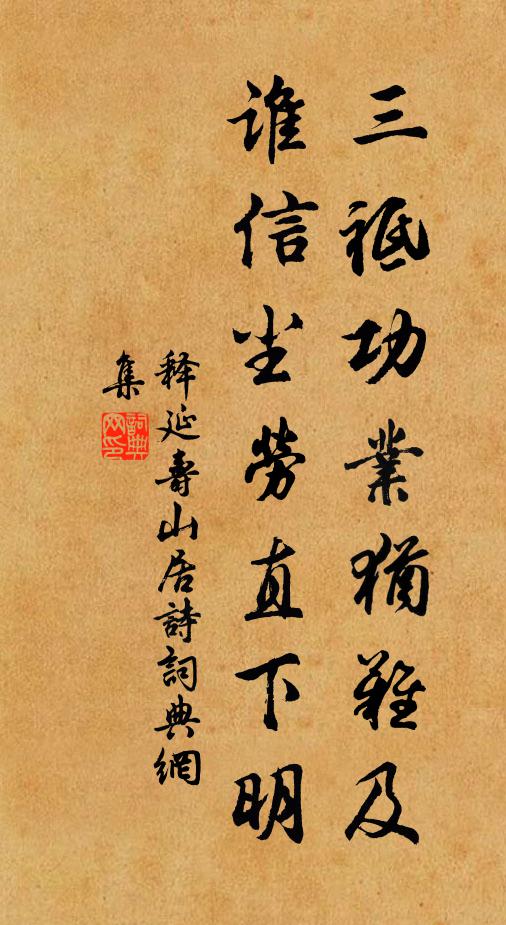 三祇功業猶難及
誰信尘勞直下明
释延壽山居詩詞典網
集
詞典網印